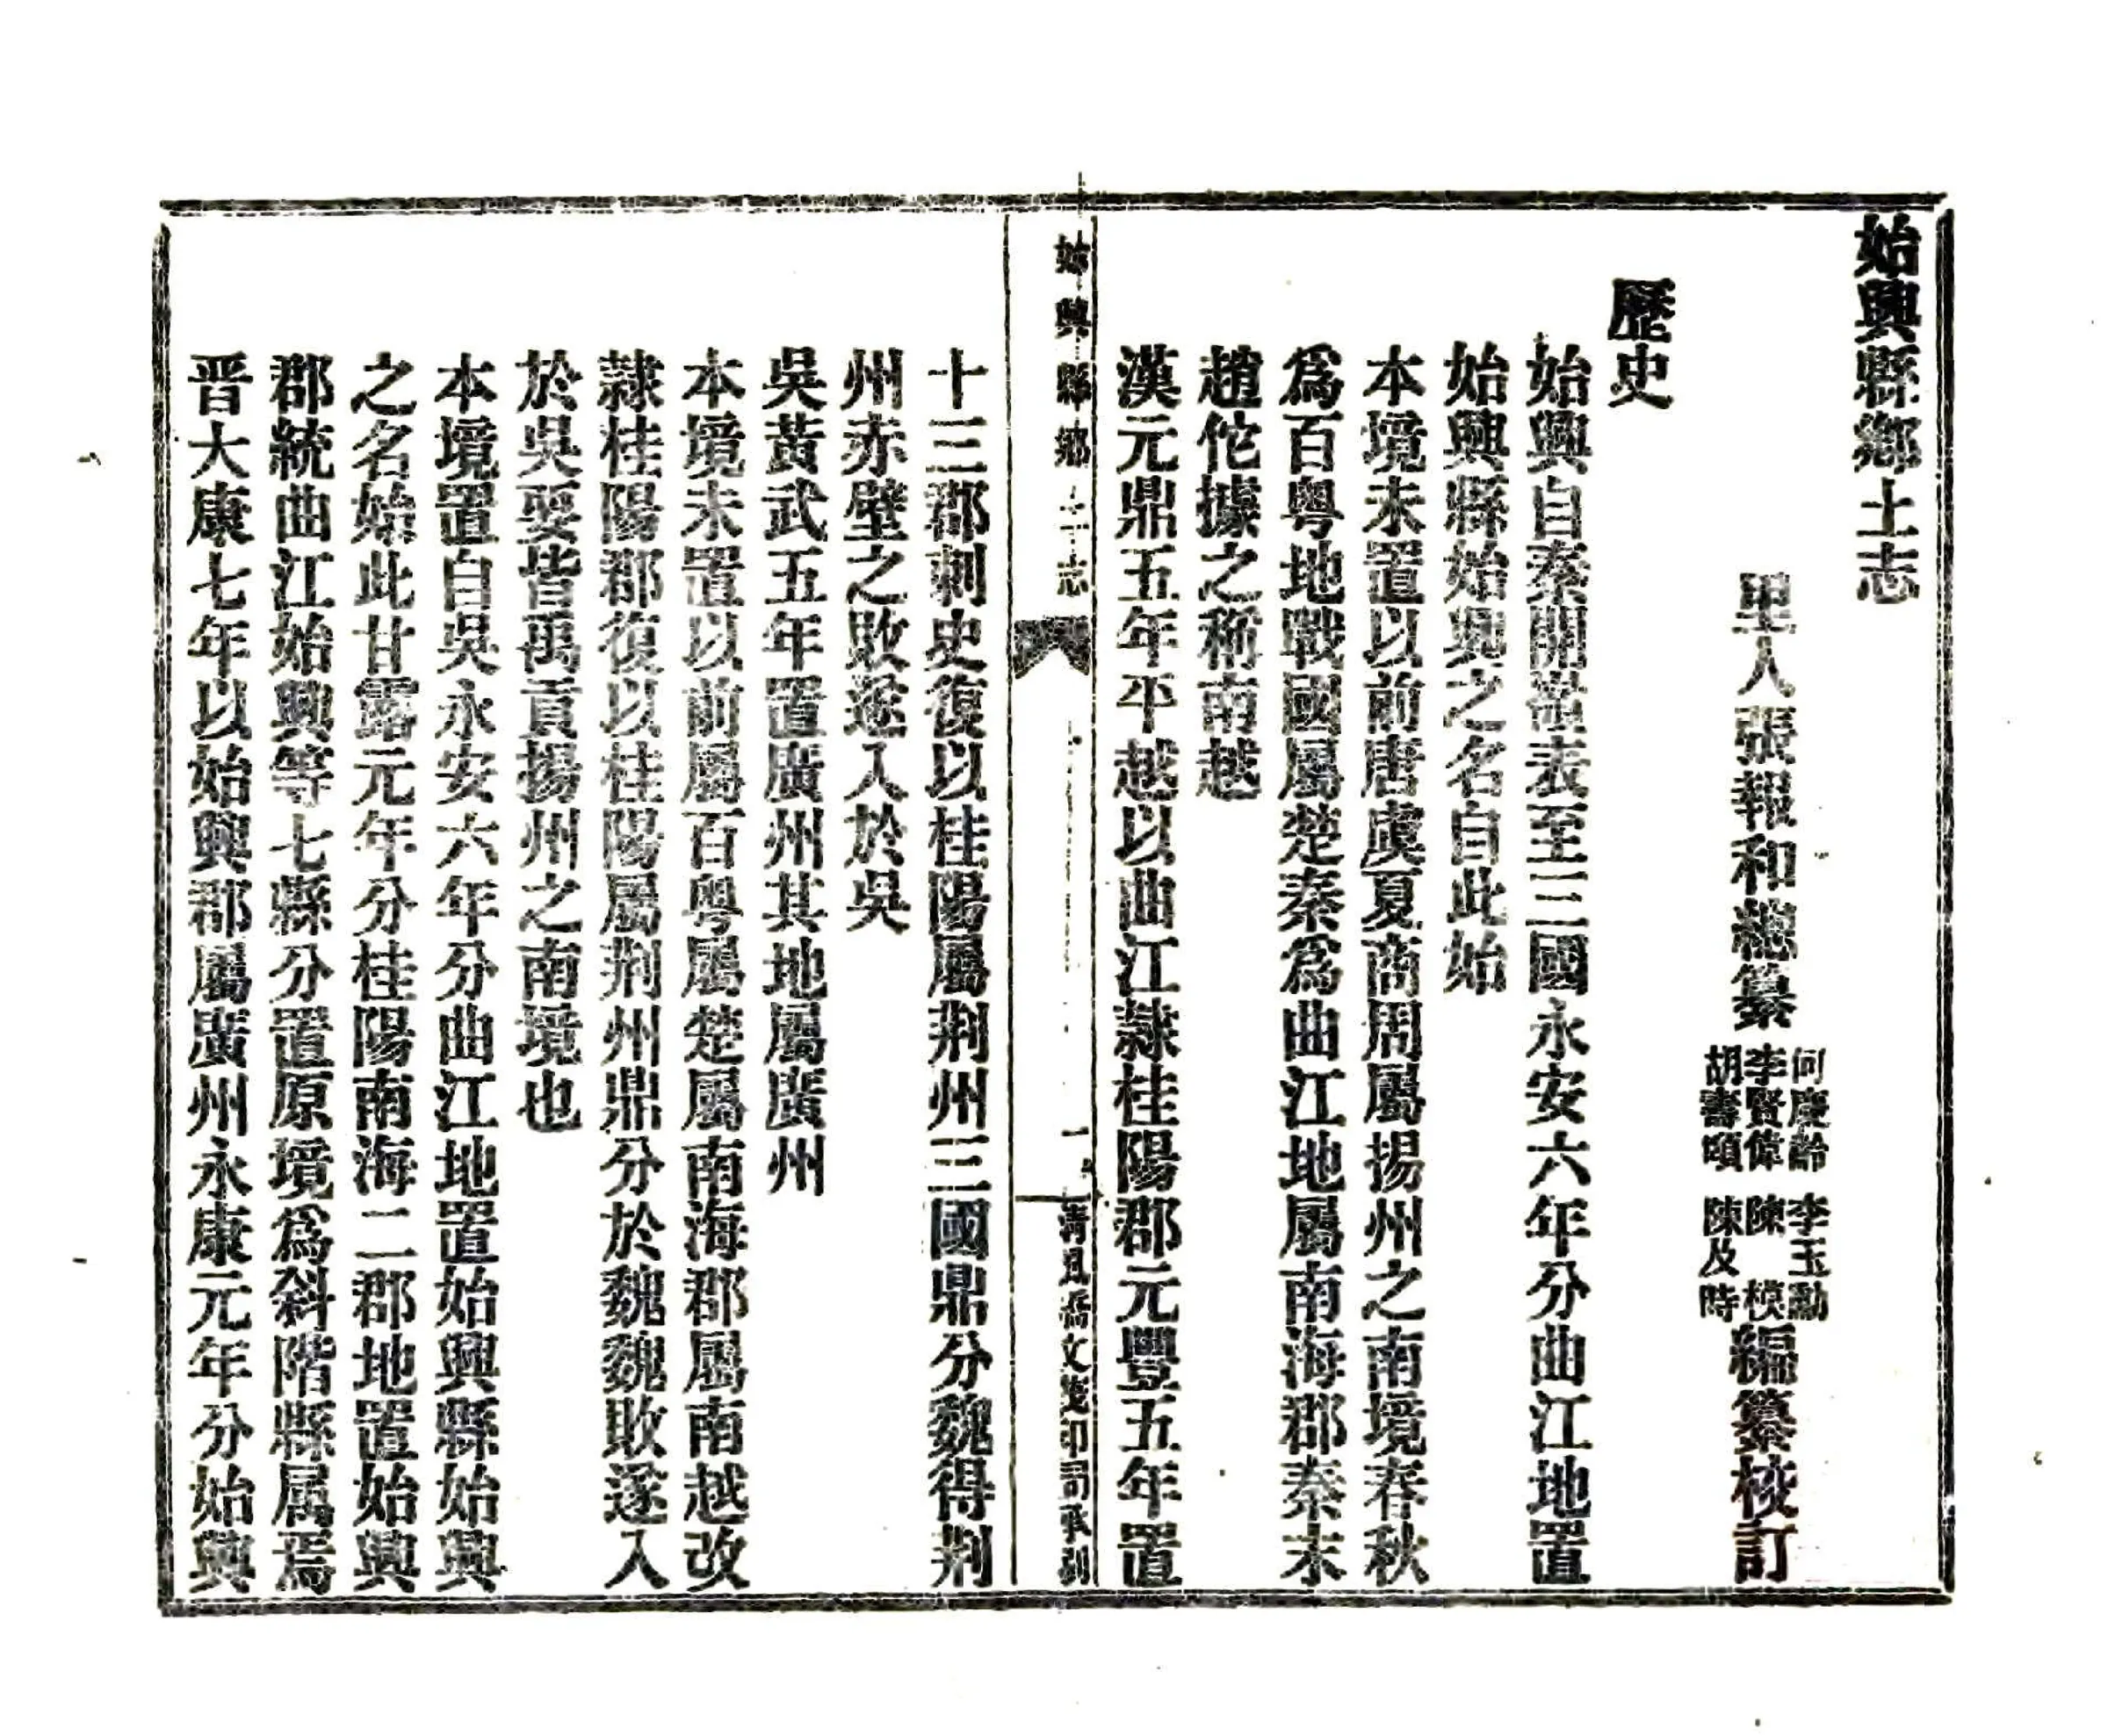 始興縣鄉土志
里人張報和總纂
何慶齡 李玉勳
李賢偉 陳 模
胡壽頌 陳及時
編纂校訂
歷史
始興自秦開嶺表至三國永安六年分曲江地置
始興縣始興之名自此始
本境未置以前唐虞夏商周屬揚州之南境春秋
為百粤地戰國屬楚秦為曲江地屬南海郡秦末
趙佗據之稱南越
漢元鼎五年平越以曲江隸桂陽郡元豐五年置
始興縣鄉土志
一
清風橋文茂印司承刊
十三郡刺史復以桂陽屬荆州三國鼎分魏得荆
州赤壁之敗遂入於吳
吳黃武五年置廣州其地屬廣州
本境未置以前屬百粤屬楚屬南海郡屬南越改
隸桂陽郡復以桂陽屬荆州鼎分於魏魏敗遂入
於吳要皆禹貢揚州之南境也
本境置自吳永安六年分曲江地置始興縣始興
之名始此甘露元年分桂陽南海二郡地置始興
郡統曲江始興等七縣分置原境為斜階縣属焉
晉大康七年以始興郡屬廣州永康元年分始興